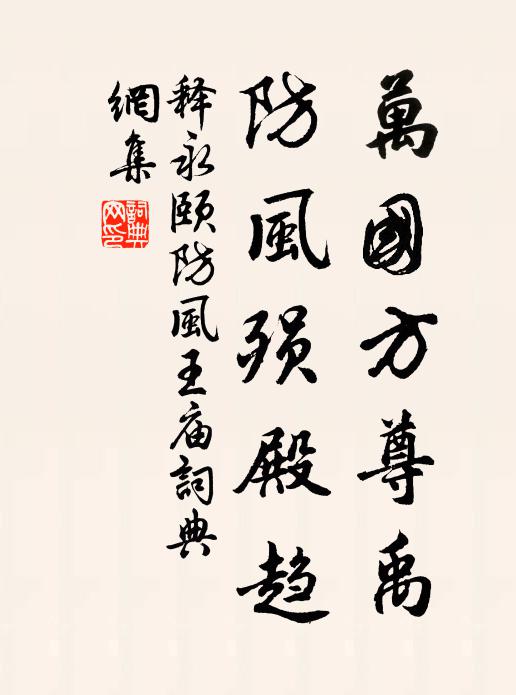 萬國方尊禹
防風殞殿趋
释永頤防風王庙詞典
網集
詞典網印